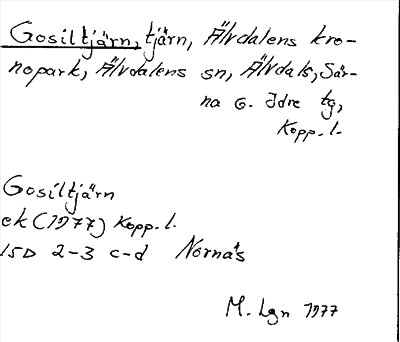 Gosiltjärn, tjärn, Älvdalens kro-
nopark, Älvdalens sn, Älvdals, Sär-
na o. Idre tg,
Kopp. l.
Gosiltjärn
ek (1977) Kopp. l.
15D 2-3 c-d Nornäs
M. Lgn 1977